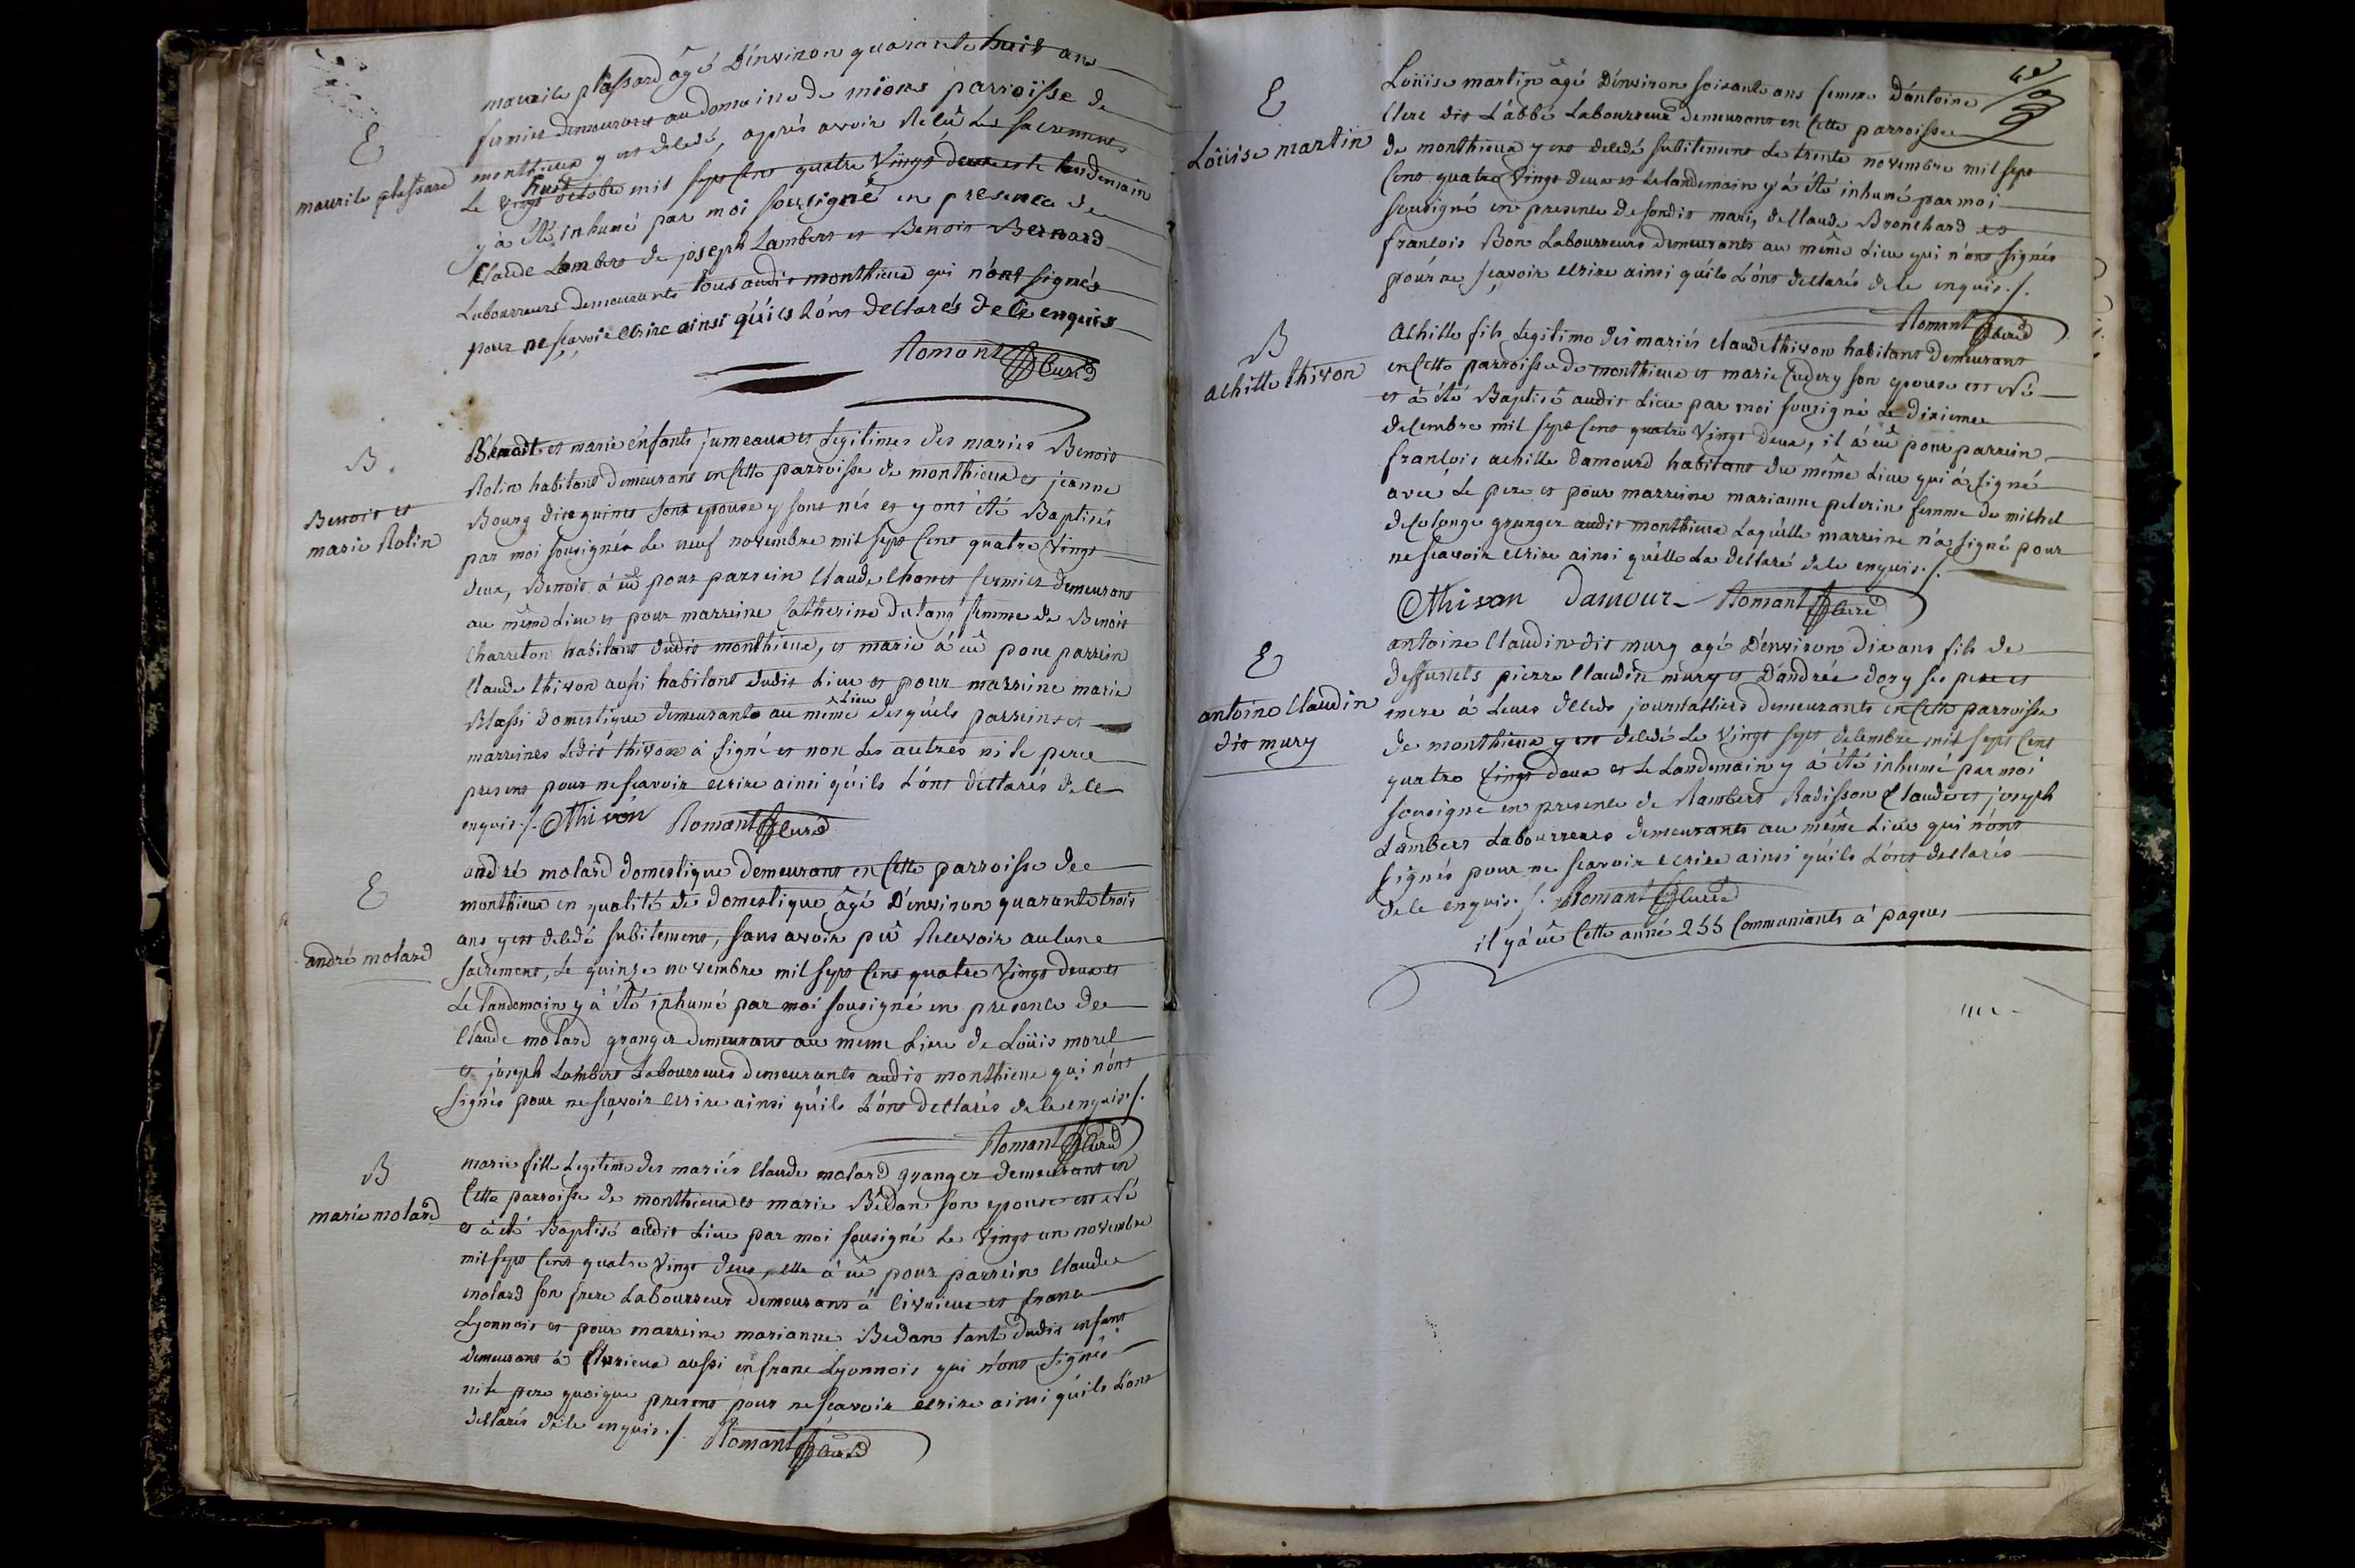 E
maurile plassard
maurile plassard âgé D'environ quarante huit ans
fermier demeurant au domaine de mions parroisse de
monthieux y est decedé, apprés avoir Recû Les sacremens
Le Vingt huit octobre mil sept Cent quatre Vingt deux et le lendemain
y à été inhumé par moi soussigné en presence de
Claude Lambert de joseph Lambert et Benoit Bernard
Laboureurs demeurants tous audit monthieux qui n'ont signés
pour ne sçavoir ecrire ainsi qu'ils L'ont declarés de ce enquis
Romant Curé
B
Benoit et
marie Rolin
Benoit et marie enfants jumeaux et Legitimes des mariés Benoit
Rolin habitant demeurant en Cette parroisse de monthieux et jeanne
Bourg dite guines sont epouse y sont nés et y ont été Baptisés
par moi sousigné Le neuf novembre mil sept Cent quatre Vingt
deux, Benoit à eû pour parrein Claude Chanet fermier demeurant
au même Lieu et pour marreine Catherine dutang femme de Benoit
Charreton habitant dudit monthieux, et marie à eû pour parrein
Claude thivon aussi habitant dudit Lieu et pour marreine marie
Blassi domestique demeurante au même Lieu desquels parreins et
marreines Ledit thivon à signé et non Les autres ni le pere
present pour ne scavoir ecrire ainsi qu'ils L'ont declarés de ce
enquis ./. CThivon Romant Curé
E
andré molard
andré molard domestique demeurant en Cette parroisse de
monthieux en qualité de domestique âgé D'environ quarante trois
ans y est decedé subitement, sans avoir pû Recevoir aucune
sacrement, Le quinze novembre mil sept Cent quatre Vingt deux et
Le landemain y à été inhumé par moi sousigné en presence de
Claude molard granger demeurant au meme Lieu de Loüis morel
et joseph Lambert Laboureurs demeurants audit monthieux qui n'ont
signés pour ne sçavoir ecrire ainsi qu'ils L'ont declarés de ce enquis ./.
Romant Curé
B
marie molard
marie fille Legitime des mariés Claude molard granger demeurant en
Cette parroisse de monthieux et marie Bedan son epouse est Né
et à été Baptisé audit Lieu par moi sousigné Le Vingt un novembre
mil sept Cent quatre Vingt deux, elle à eû pour parrein Claude
molard son frere Laboureur demeurant à Civrieux en franc
Lyonnois et pour marreine marianne Bedan tante dudit enfant
demeurant à fleurieux aussi en franc Lyonnois qui n'ont signés
ni le pere quoique present pour ne scavoir ecrire ainsi qu'ils L'ont
declarés de ce enquis ./. Romant Curé
E
Loüise martin
Loüise martin âgé D'environ soixante ans femme D'antoine
Clerc dit L'abbé Laboureur demeurant en Cette parroisse
de monthieux y est decedé subitement Le trente novembre mil sept
Cent quatre Vingt deux et Le landemain y à été inhumé par moi
sousigné en presence de sondit mari, de Claude Bronchard et
francois Bon Laboureurs demeurants au même Lieu qui n'ont signés
pour ne sçavoir ecrire ainsi qu'ils L'ont declarés de ce enquis ./.
Romant Curé
B
achille thivon
achille fils Legitime des mariés claude thivon habitant demeurant
en Cette parroisse de monthieux et marie Cudery son epouse est Né
et à été Baptisé audit Lieu par moi sousigné Le dixieme
decembre mil sept Cent quatre Vingt deux, il à eû pour parrein
francois achille damourd habitant du même Lieu qui à signé
avec Le pere et pour marreine marianne pelerin femme de michel
delolange granger audit monthieux Laquelle marreine n'a signé pour
ne scavoir ecrire ainsi qu'elle La declaré de ce enquis ./.
CThivon Damour Romant Curé
E
antoine Claudin
dit mury
antoine Claudin dit mury agé D'environ dix ans fils de
deffunts pierre Claudin mury et D'andrée dory ses pere et
mere à Leurs deceds journalliers demeurants en Cette parroisse
de monthieux y est decedé Le Vingt sept decembre mil sept Cent
quatre Vingt deux et Le Landemain y à été inhumé par moi
sousigné en presence de Rambert Radisson Claude et joseph
Lambert Laboureurs demeurants au même Lieu qui n'ont
signés pour ne scavoir ecrire ainsi qu'ils L'ont declarés
de ce enquis ./. Romant Curé
il y à eû Cette anné 255 Communiants à paques